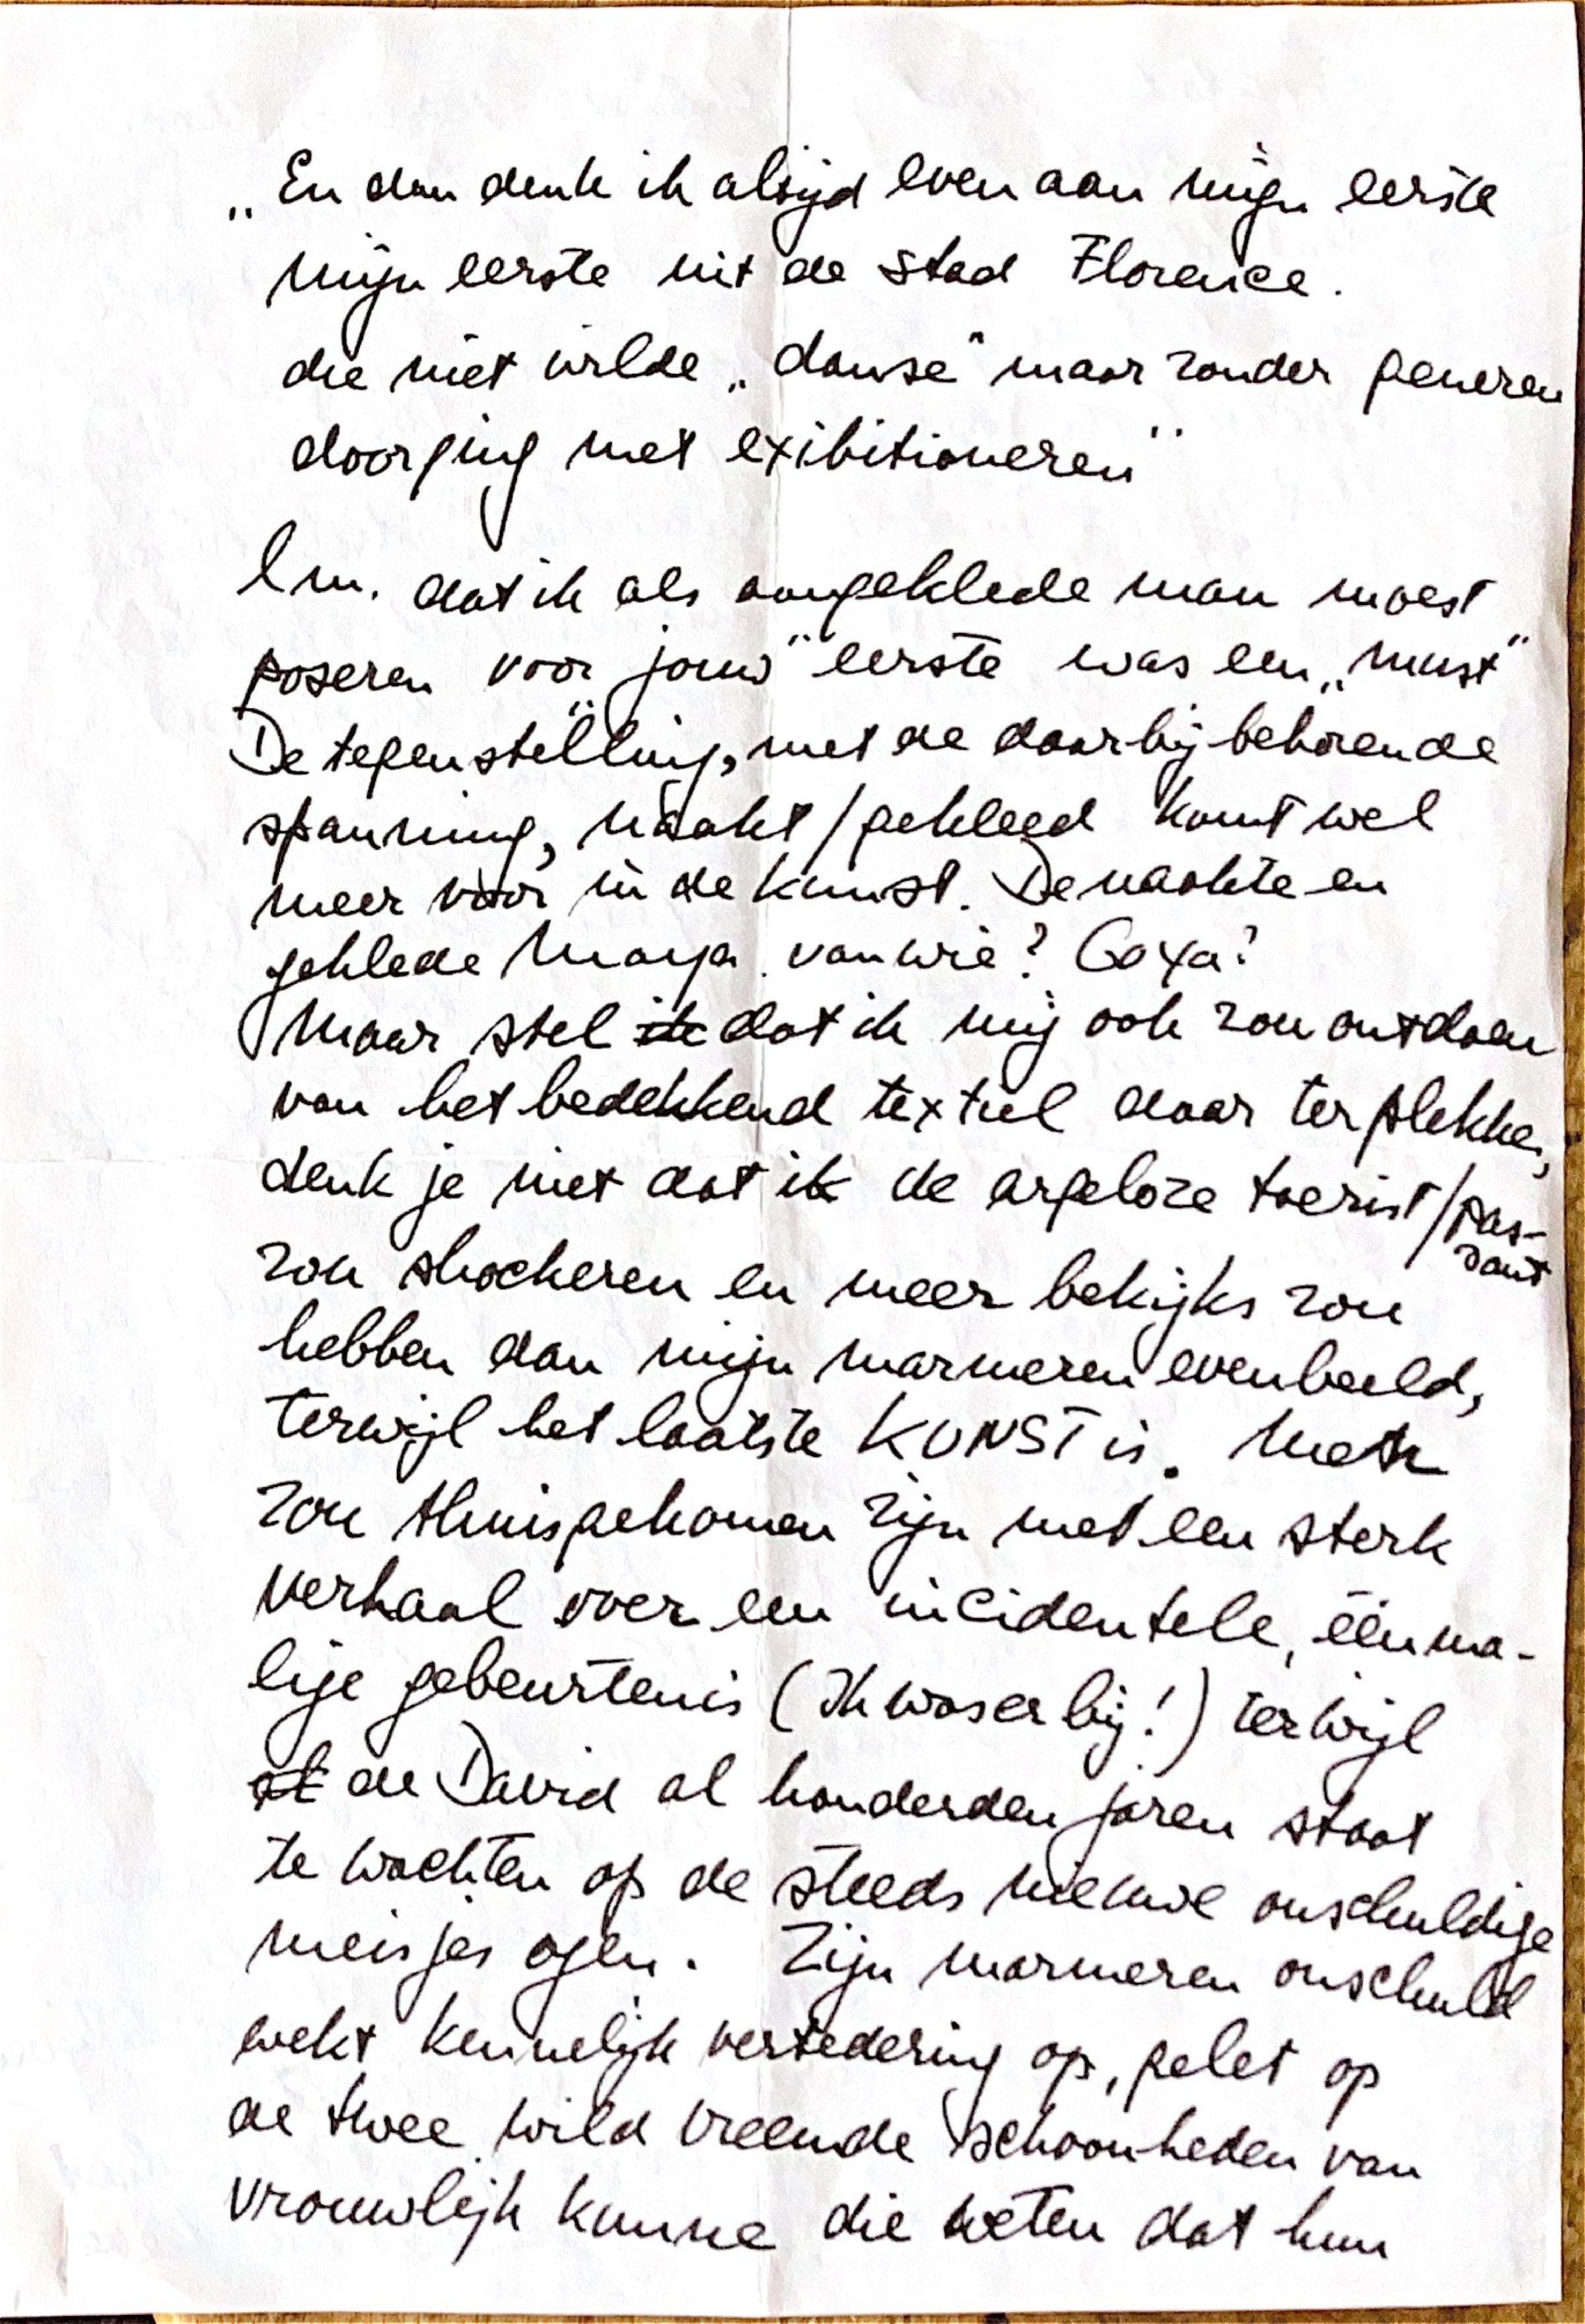 „En dan denk ik altijd even aan mijn eerste
mijn eerste uit de stad Florence.
die niet wilde „danse" maar zonder generen
doorging met exibitioneren"
Em. dat ik als aangeklede man moest
poseren voor „jouw" eerste was een „must"
De tegenstelling, met de daarbij behorende
spanning, naakt/gekleed komt wel
meer voor in de kunst. De naakte en
geklede Maya. van wie? Goya?
Maar stel dat ik mij ook zou ontdoen
van het bedekkend textiel daar ter plekke,
denk je niet dat ik de argeloze toerist/pas-
sant
zou shockeren en meer bekijks zou
hebben dan mijn marmeren evenbeeld,
terwijl het laatste KUNST is. Men
zou thuisgekomen zijn met een sterk
verhaal over een incidentele, éénma-
lige gebeurtenis (Ik was er bij!) terwijl
de David al honderden jaren staat
te wachten op de steeds nieuwe onschuldige
meisjes ogen. Zijn marmeren onschuld
wekt kennelijk vertedering op, gelet op
de twee wild vreemde schoonheden van
vrouwlijk kunne die weten dat hun